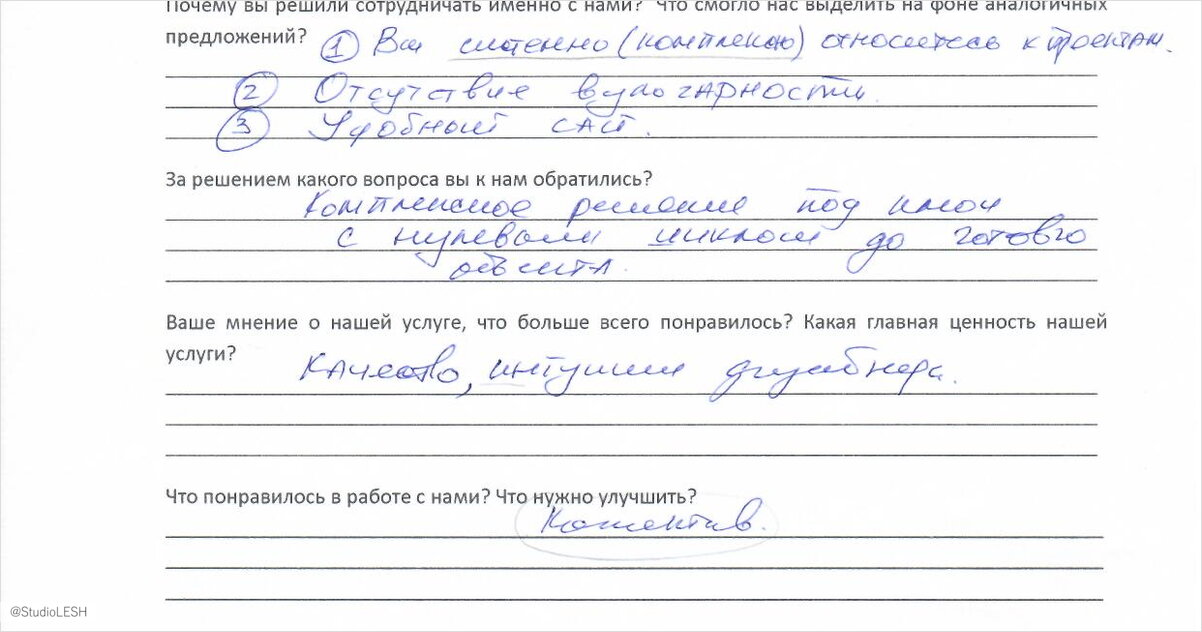 Почему вы решили сотрудничать именно с нами? Что смогло нас выделить на фоне аналогичных
предложений? ① Вы системно (комплексно) относитесь к проектам.
② Отсутствие вульгарности.
③ Удобный сайт.
За решением какого вопроса вы к нам обратились?
Комплексное решение под ключ
с нулевым циклом до готового
объекта.
Ваше мнение о нашей услуге, что больше всего понравилось? Какая главная ценность нашей
услуги? Качество, интуиция дизайнера.
Что понравилось в работе с нами? Что нужно улучшить?
Коллектив.
@StudioLESH